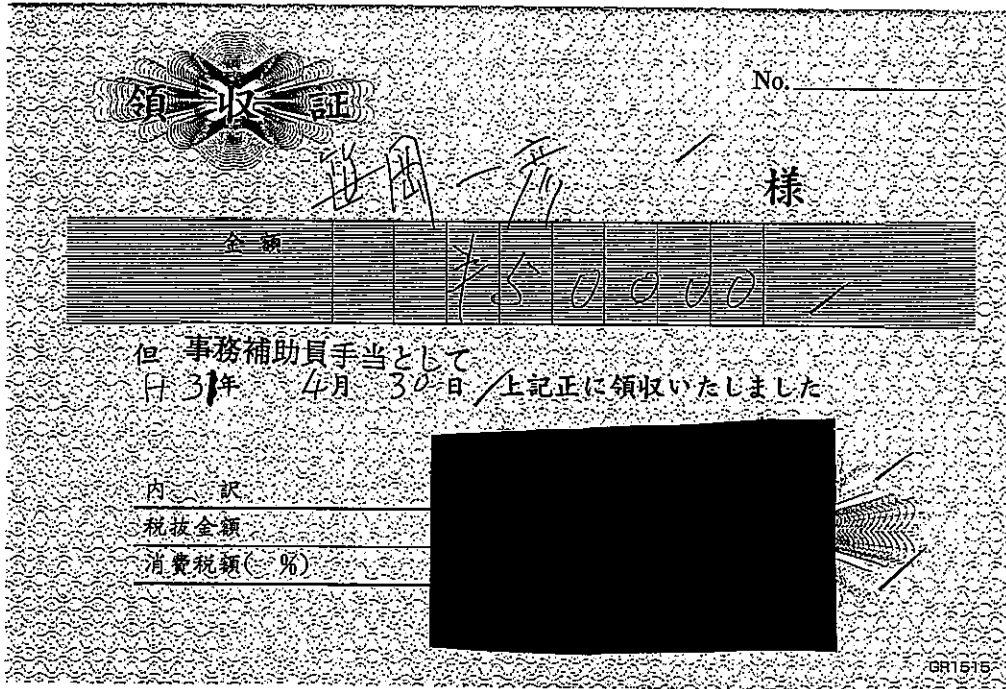 領収証
No.
笹岡一彦 様
金額 ¥50000
但 事務補助員手当として
H31年 4月 30日 上記正に領収いたしました
内 訳
税抜金額
消費税額( %)
GR1515